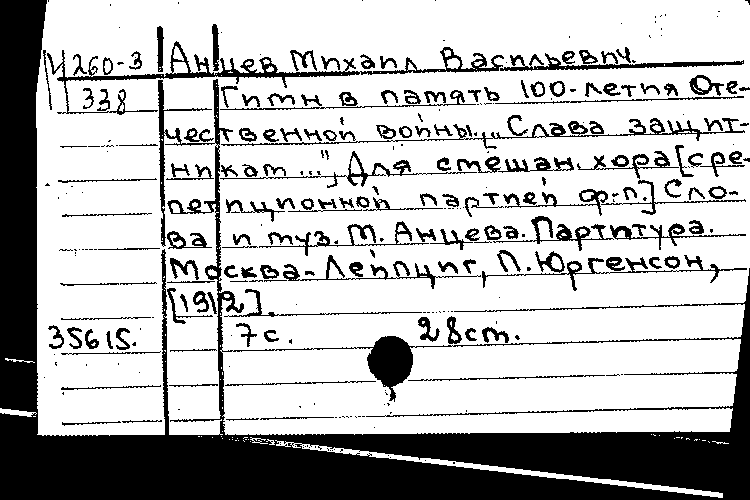 И 260-3 Анцев, Михаил Васильевич.
338 Гимн в память 100-летия Оте-
чественной войны. „Слава защит-
никам...", Для смешан. хора [с ре-
петиционной партией ф-п.] Сло-
ва и муз. М. Анцева. Партитура.
Москва-Лейпциг, П. Юргенсон,
[1912].
35615. 7 с. 28 cm.